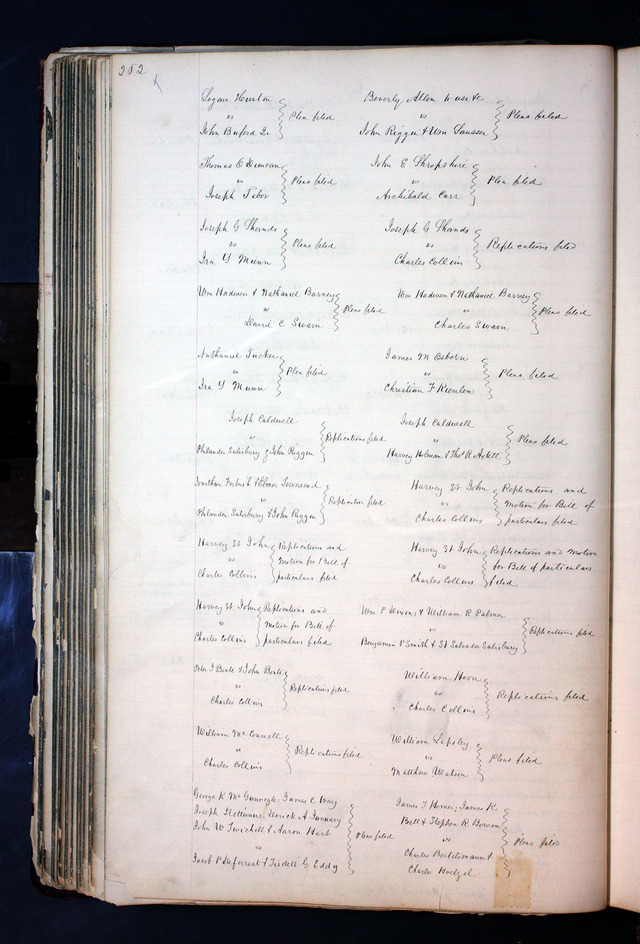 262
Logan Hunton
vs
John Buford Jr
Plea filed
Beverly Allen to use &c
vs
John Riggen & Wm
Pleas filed
Thomas E Duncan
vs
Joseph Tabor
Pleas filed
John E Shropshire
vs
Archibald Carr
Plea filed
Joseph G Shands
vs
Ira Y Munn
Pleas filed
Joseph G Shands
vs
Charles Collins
Replications filed
Wm Hadwen & Nathaniel Barney
vs
David C Swain
Pleas filed
Wm Hadwen & Nathaniel Barney
vs
Charles Swain
Pleas filed
Nathaniel Tucker
vs
Ira Y Munn
Plea filed
James M Osborn
vs
Christian F
Pleas filed
Joseph Caldwell
vs
Philander Salisbury & John Riggen
Replications filed
Joseph Caldwell
vs
Harvey Holman & Thos R
Pleas filed
Jonathan & Elmer Townsend
vs
Philander Salisbury & John Riggen
Replication filed
Harvey St John
vs
Charles Collins
Replications and
Motion for Bill of
particulars filed
Harvey St John
vs
Charles Collins
Replications and
Motion for Bill of
particulars filed
Harvey St John
vs
Charles Collins
Replications and motion
for Bill of particulars
filed
Harvey St John
vs
Charles Collins
Replications and
Motion for Bill of
particulars filed
Wm P & William R Palmer
vs
Benjamin P Smith & St Salvador Salisbury
Replications filed
Peter I Boute & John Boute
vs
Charles Collins
Replications filed
William Hoon
vs
Charles Collins
Replications filed
William McConnell
vs
Charles Collins
Replications filed
William Lapsley
vs
Matthew Watson
Pleas filed
George K McGunnegle, James C Way
Joseph Stettinius, Derick A January
John W Twichell & Aaron Hart
vs
Jacob P Deforrest & Tisdell G Eddy
Pleas filed
James T Horner, James K
Bell & Stephen R Bowen
vs
Charles
Charles Hoelzel
Pleas filed